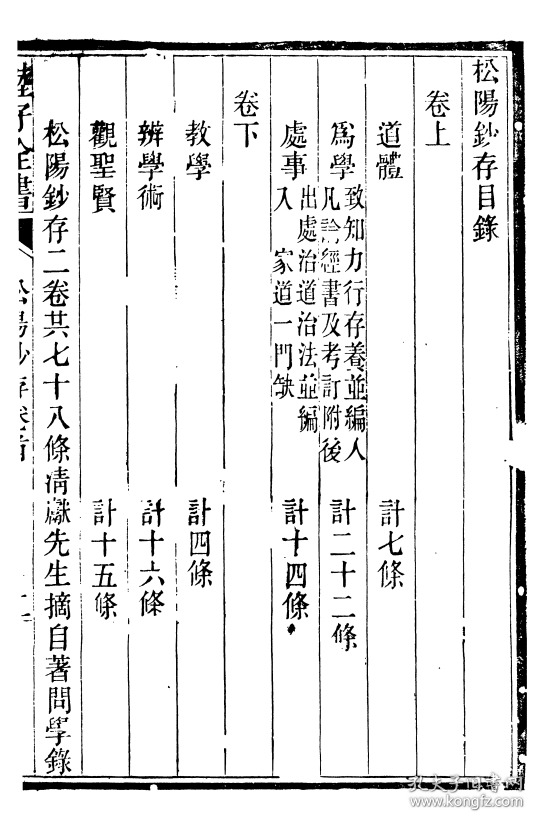 松陽鈔存目錄
卷上
道體　計七條
爲學　致知力行存養並編人
凡論經書及考訂附後　計二十二條
處事　出處治道治法並編
入　家道一門缺　計十四條
卷下
教學　計四條
辨學術　計十六條
觀聖賢　計十五條
松陽鈔存二卷共七十八條清獻先生摘自著問學錄
陸子全書
松陽鈔存卷首
孔夫子旧书网
www.kongfz.com